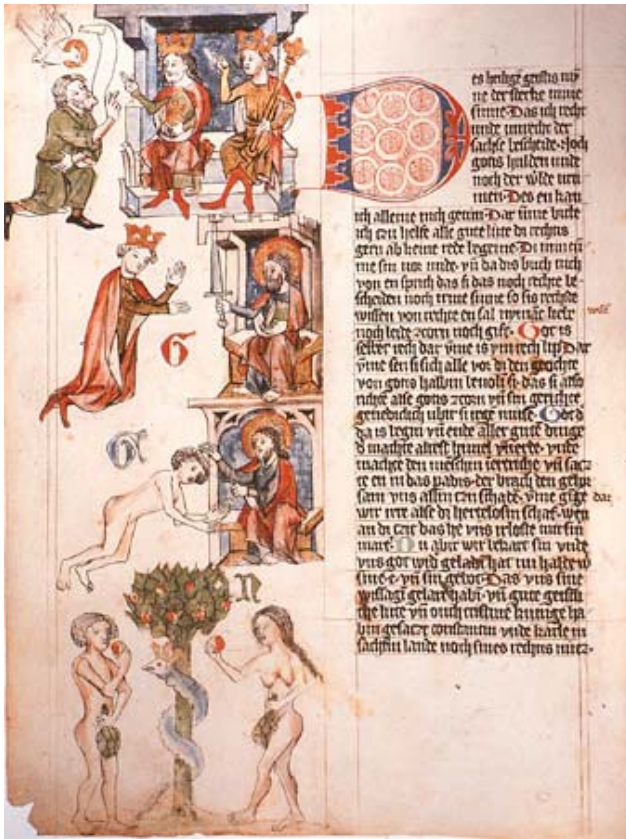 es heilige geistis mÿ
ne der sterke mine
sinne Das ich recht
unde unrecht der
sachse bescheide Noch
gotis hulden unde
noch der w͛lde vru
men Des en kan
ich alleine nich getun Dar ūme bitte
ich czu helfe alle gute lute di rechtis
gern ab keine rede begeine Di
me sin vor mide vn̄ da dis buch nich
von en sprich das si das noch rechte be
scheiden noch irme sinne so sis rechste
wissen von rechte en sal nyman liebe
noch leide zcorn noch gift Got is
selber rech dar ūme is ym rech lip Dar
ūme sen si sich alle vor di den gerichte
von gotis halbin bevoln si das si also
richte alse gotis zcorn vn̄ sin gerichte
genediclich ubir si irge muse Got d
da is begin vn̄ ende aller gute dinge
d machte alrest himel vn̄ erde vnde
machte den menschin vn̄ sacz
te en in das padis der brach den gehor
sam vns allin czu schadē ūme gige
dar
wir irre alse di hertelosin schaf wen
an di czit das he vns irloste mit sin
mart Nu abir wir bekart sin vnde
vns got wid geladt hat nu halde w
sine e vn̄ sin gebot Das vns sine
wissagī gelart habī vn̄ gute geistli
che lute vn̄ ouch cristine kunige ha
bin gesaczt constantin vnde karle in
sachsin lande noch sines rechtis